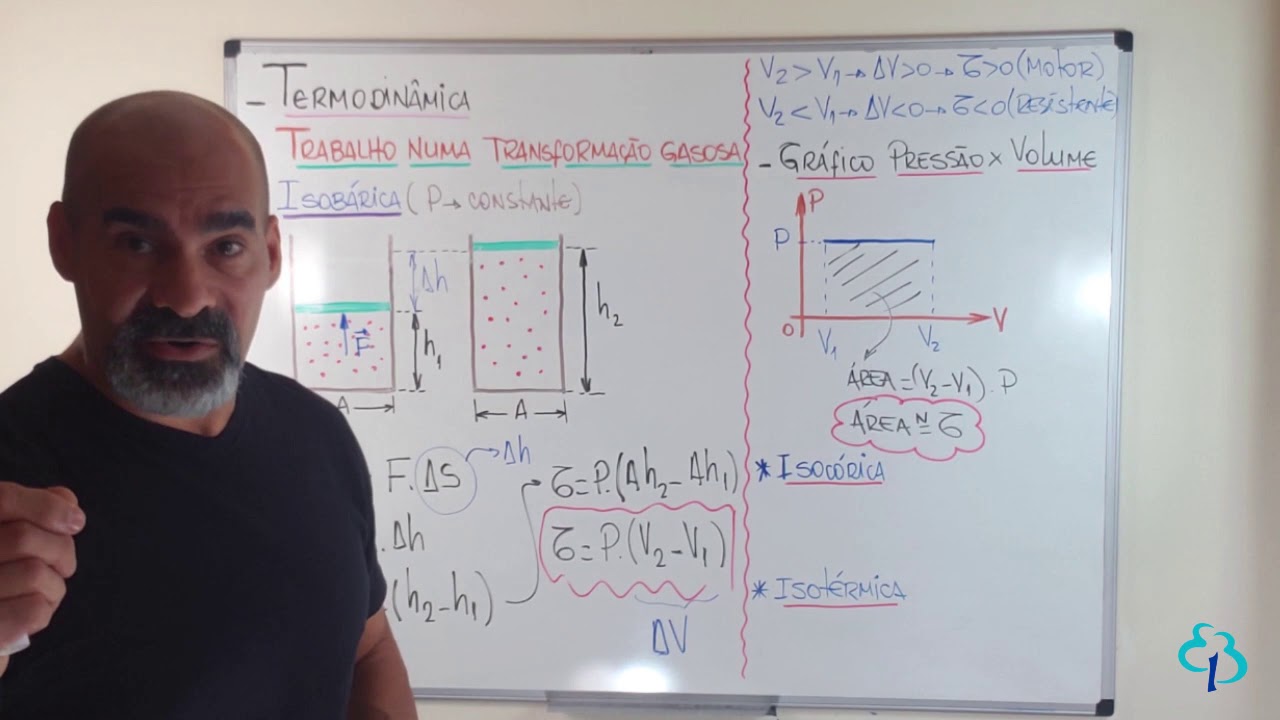 - TERMODINÂMICA
TRABALHO NUMA TRANSFORMAÇÃO GASOSA
ISOBÁRICA (P → CONSTANTE)
Δh
h₁
F⃗
A
h₂
A
F.ΔS → Δh
.Δh
(h₂-h₁)
𝜏=P.(Ah₂-Ah₁)
𝜏=P.(V₂-V₁)
ΔV
V₂>V₁→ΔV>0→𝜏>0 (MOTOR)
V₂<V₁→ΔV<0→𝜏<0 (RESISTENTE)
- GRÁFICO PRESSÃO × VOLUME
P
P
0
V₁
V₂
V
ÁREA=(V₂-V₁).P
ÁREA ᴺ= 𝜏
* ISOCÓRICA
* ISOTÉRMICA